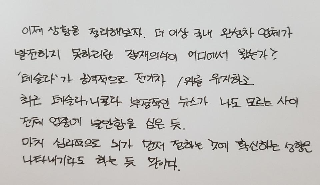 이제 상황을 정리해보자. 더 이상 국내 완성차 업체가
발전하지 못하리란 잠재의식이 어디에서 왔는가?
'테슬라'가 공격적으로 전기차 1위를 유지하고
최근 테슬라, 니콜라 부정적인 뉴스가 나도 모르는 사이
전체 업종에 불안함을 심은 듯.
마치 심리적으로 뭐가 먼저 전하는 것에 확신하는 상황은
나타내기라도 하는 듯 말이다.